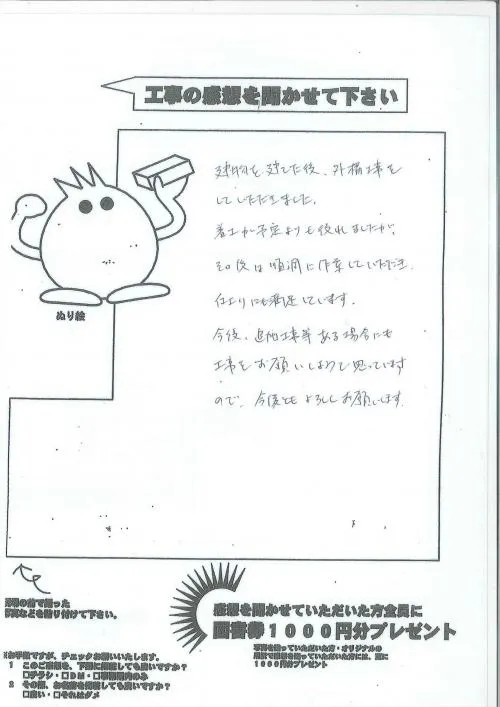 工事の感想を聞かせて下さい
建物を建てた後、外構工事を
していただきました。
着工が予定よりも後れましたが、
その後は順調に作業していただき、
仕上りにも満足しています。
今後、追加工事等ある場合にも
工事をお願いしようと思っています
ので、今後ともよろしくお願いします。
ぬり絵
の前で撮った
などを貼り付けて下さい。
感想を聞かせていただいた方全員に
図書券1000円分プレゼント
写真を貼っていただいた方・オリジナルの
1000円分プレゼント
お手数ですが、チェックお願いいたします。
1 このご感想を、下記に掲載しても良いですか?
□チラシ・□DM・□事務所内のみ
2 その際、お名前を掲載しても良いですか?
□良い・□それはダメ